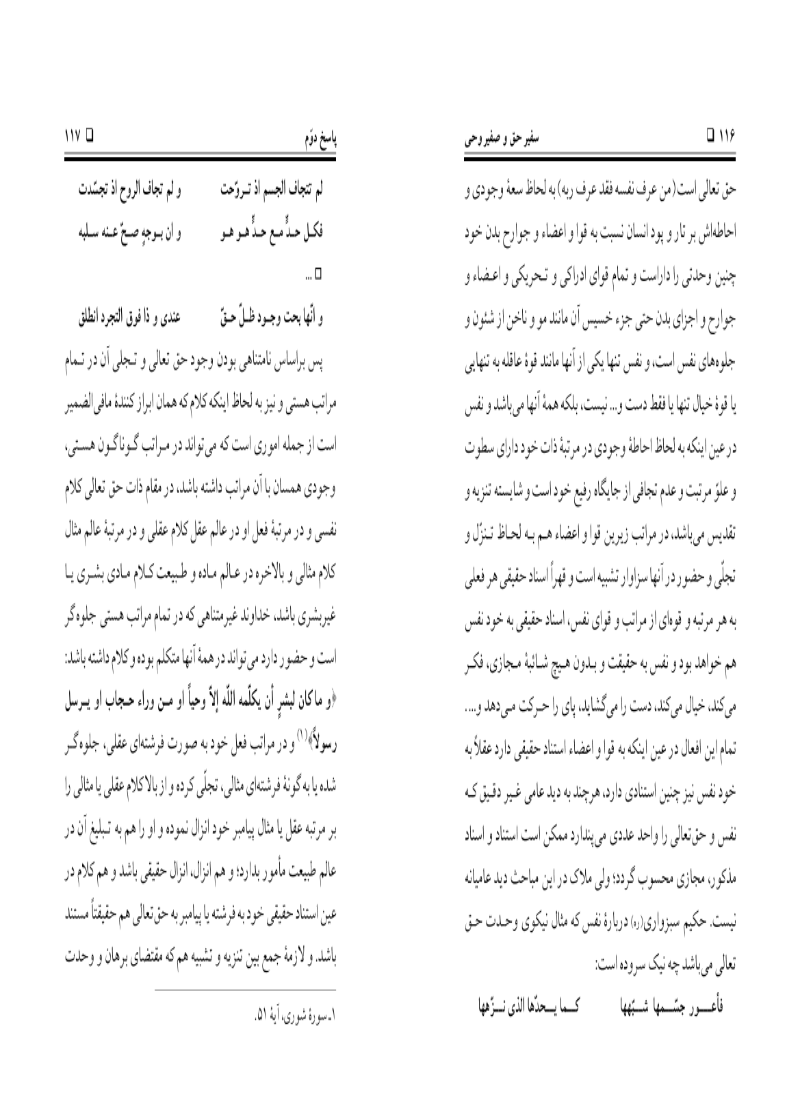 ۱۱۶ ❑ سفیر حق و صفیر وحی
حق تعالی است(من عرف نفسه فقد عرف ربه) به لحاظ سعهٔ وجودی و
احاطه‌اش بر تار و پود انسان نسبت به قوا و اعضاء و جوارح بدن خود
چنین وحدتی را داراست و تمام قوای ادراکی و تـحریکی و اعـضاء و
جوارح و اجزای بدن حتی جزء خسیس آن مانند مو و ناخن از شئون و
جلوه‌های نفس است، و نفس تنها یکی از آنها مانند قوهٔ عاقله به تنهایی
یا قوهٔ خیال تنها یا فقط دست و... نیست، بلکه همهٔ آنها می‌باشد و نفس
در عین اینکه به لحاظ احاطهٔ وجودی در مرتبهٔ ذات خود دارای سطوت
و علوّ مرتبت و عدم تجافی از جایگاه رفیع خود است و شایسته تنزیه و
تقدیس می‌باشد، در مراتب زیرین قوا و اعضاء هـم بـه لحـاظ تـنزّل و
تجلّی و حضور در آنها سزاوار تشبیه است و قهراً اسناد حقیقی هر فعلی
به هر مرتبه و قوه‌ای از مراتب و قوای نفس، اسناد حقیقی به خود نفس
هم خواهد بود و نفس به حقیقت و بـدون هیچ شـائبهٔ مـجازی، فکـر
می‌کند، خیال می‌کند، دست را می‌گشاید، پای را حـرکت مـی‌دهد و....
تمام این افعال در عین اینکه به قوا و اعضاء استناد حقیقی دارد عقلاً به
خود نفس نیز چنین استنادی دارد، هرچند به دید عامی غـیر دقـیق کـه
نفس و حق‌تعالی را واحد عددی می‌پندارد ممکن است استناد و اسناد
مذکور، مجازی محسوب گردد؛ ولی ملاک در این مباحث دید عامیانه
نیست. حکیم سبزواری(ره) دربارهٔ نفس که مثال نیکوی وحـدت حـق
تعالی می‌باشد چه نیک سروده است:
فأعـــور جسّـــمها شـــبّهها کـــما یـــحدّها الذی نـــزّهها
پاسخ دوّم ❑ ۱۱۷
لم تتجاف الجسم اذ تـروّحت و لم تجاف الروح اذ تجسّدت
فکـل حـدٍّ مـع حـدٍّ هـو هـو و ان بـوجهٍ صـحّ عـنه سـلبه
❑ ...
و انّها بحت وجـود ظـلّ حـقّ عندی و ذا فوق التجرد انطلق
پس براساس نامتناهی بودن وجود حق تعالی و تـجلی آن در تـمام
مراتب هستی و نیز به لحاظ اینکه کلام که همان ابراز کنندهٔ مافی‌الضمیر
است از جمله اموری است که می‌تواند در مـراتب گـوناگـون هسـتی،
وجودی همسان با آن مراتب داشته باشد، در مقام ذات حق تعالی کلام
نفسی و در مرتبهٔ فعل او در عالم عقل کلام عقلی و در مرتبهٔ عالم مثال
کلام مثالی و بالاخره در عـالم مـاده و طـبیعت کـلام مـادی بشـری یـا
غیربشری باشد، خداوند غیرمتناهی که در تمام مراتب هستی جلوه‌گر
است و حضور دارد می‌تواند در همهٔ آنها متکلم بوده و کلام داشته باشد:
﴿و ما کان لبشرٍ أن یکلّمه اللّه إلاّ وحیاً او مـن وراء حـجاب او یـرسل
رسولاً﴾(۱) و در مراتب فعل خود به صورت فرشته‌ای عقلی، جلوه‌گـر
شده یا به گونهٔ فرشته‌ای مثالی، تجلّی کرده و از بالا کلام عقلی یا مثالی را
بر مرتبه عقل یا مثال پیامبر خود انزال نموده و او را هم به تـبلیغ آن در
عالم طبیعت مأمور بدارد؛ و هم انزال، انزال حقیقی باشد و هم کلام در
عین استناد حقیقی خود به فرشته یا پیامبر به حق‌تعالی هم حقیقتاً مستند
باشد. و لازمهٔ جمع بین تنزیه و تشبیه هم که مقتضای برهان و وحدت
۱ـ سورهٔ شوری، آیهٔ ۵۱.